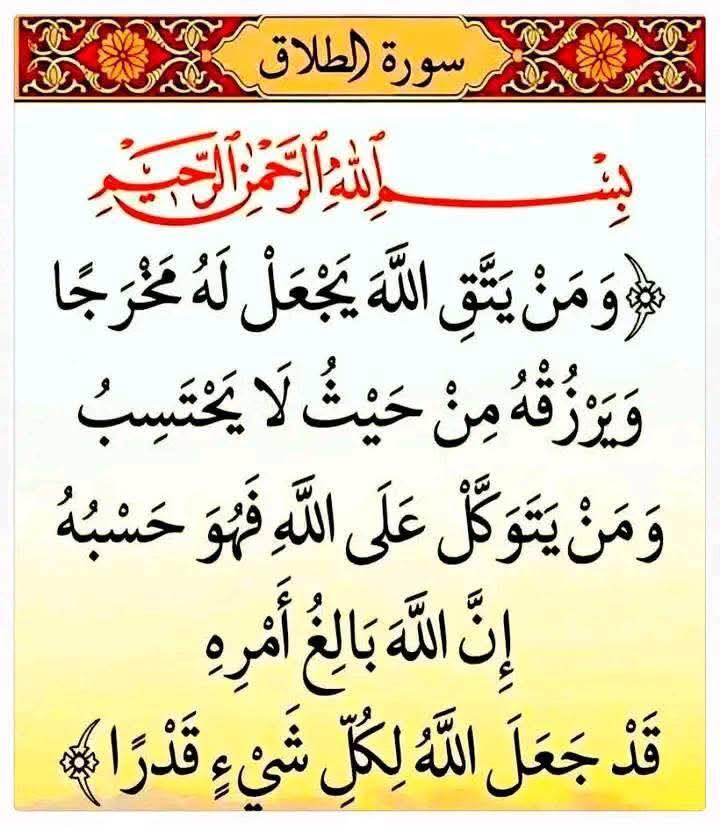 سورة الطلاق
بِسْمِ اللهِ الرَّحْمٰنِ الرَّحِيْمِ
﴿وَمَنْ يَتَّقِ اللَّهَ يَجْعَلْ لَهُ مَخْرَجًا
وَيَرْزُقْهُ مِنْ حَيْثُ لَا يَحْتَسِبُ
وَمَنْ يَتَوَكَّلْ عَلَى اللَّهِ فَهُوَ حَسْبُهُ
إِنَّ اللَّهَ بَالِغُ أَمْرِهِ
قَدْ جَعَلَ اللَّهُ لِكُلِّ شَيْءٍ قَدْرًا﴾